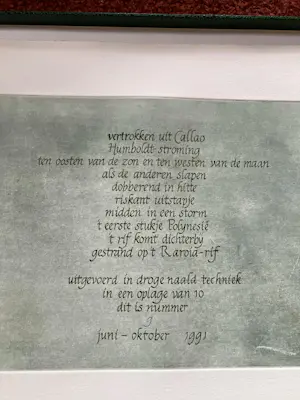 vertrokken uit Callao
Humboldt-stroming
ten oosten van de zon en ten westen van de maan
als de anderen slapen
dobberend in hitte
riskant uitstapje
midden in een storm
't eerste stukje Polynesië
't rif komt dichterby
gestrand op 't Raroia-rif
uitgevoerd in droge naald techniek
in een oplage van 10
dit is nummer
9
juni - oktober 1991